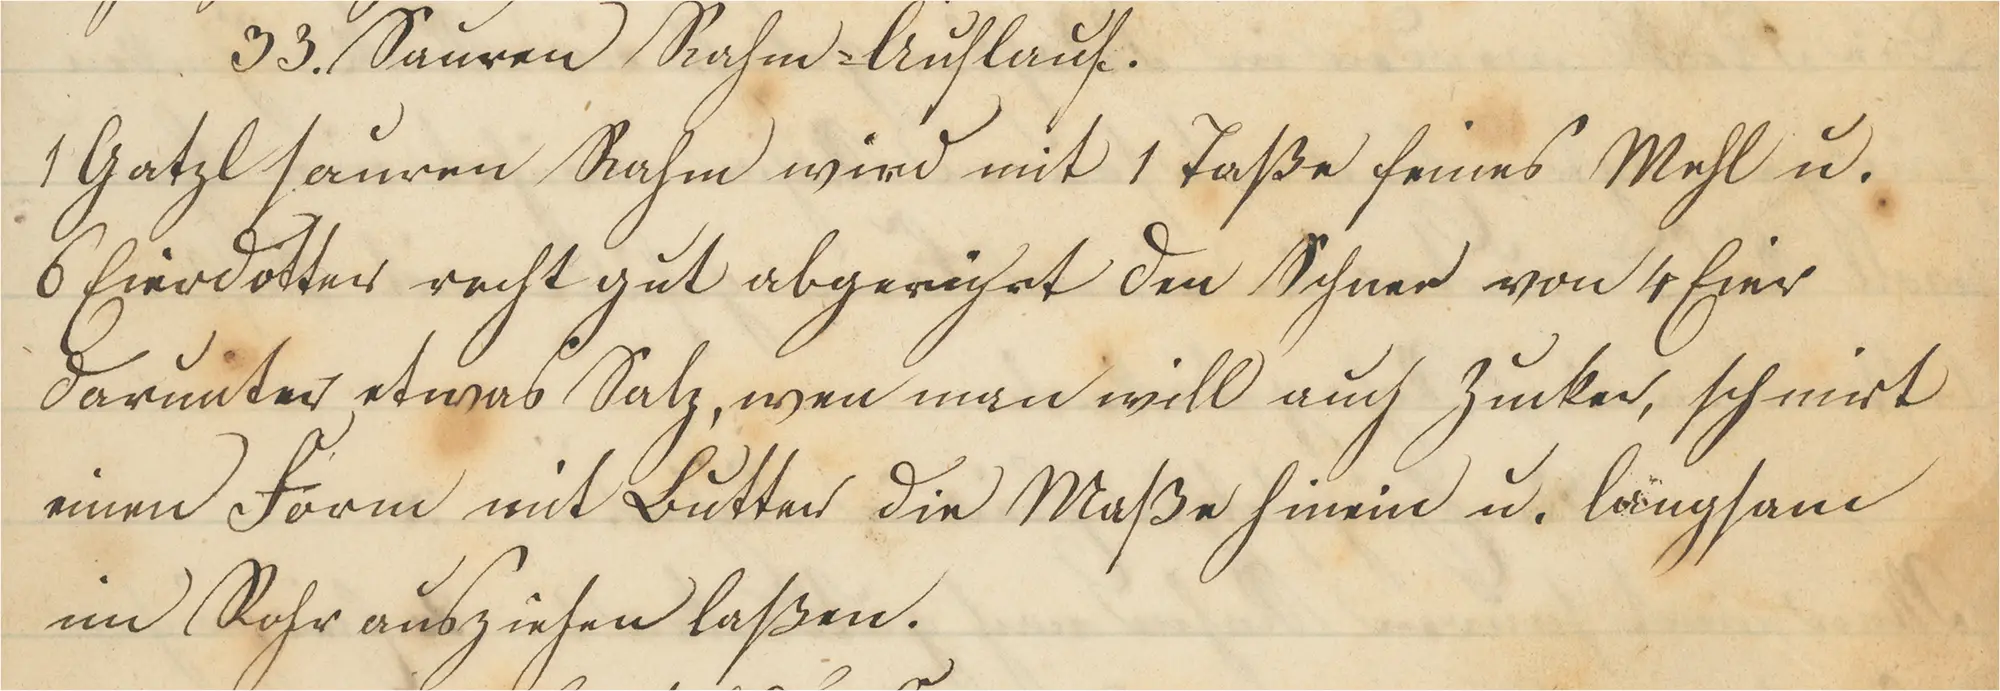 33. Sauren Rahm=Auflauf.
1 Gatzl sauren Rahm wird mit 1 Taße feines Mehl u.
6 Eierdotter recht gut abgerührt den Schnee von 4 Eier
darunter etwas Salz, wen man will auch Zucker, schmirt
einen Form mit Butter die Maße hinein u. langsam
im Rohr ausziehen laßen.